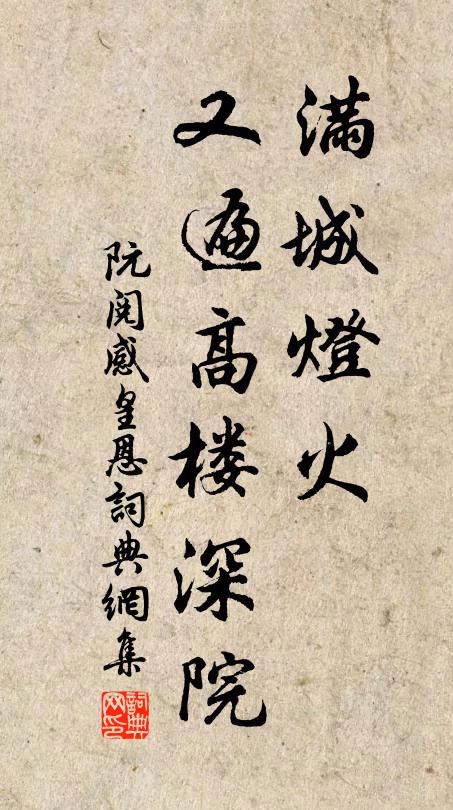 滿城燈火
又遍高楼深院
阮閱感皇恩詞典網集
詞典网印